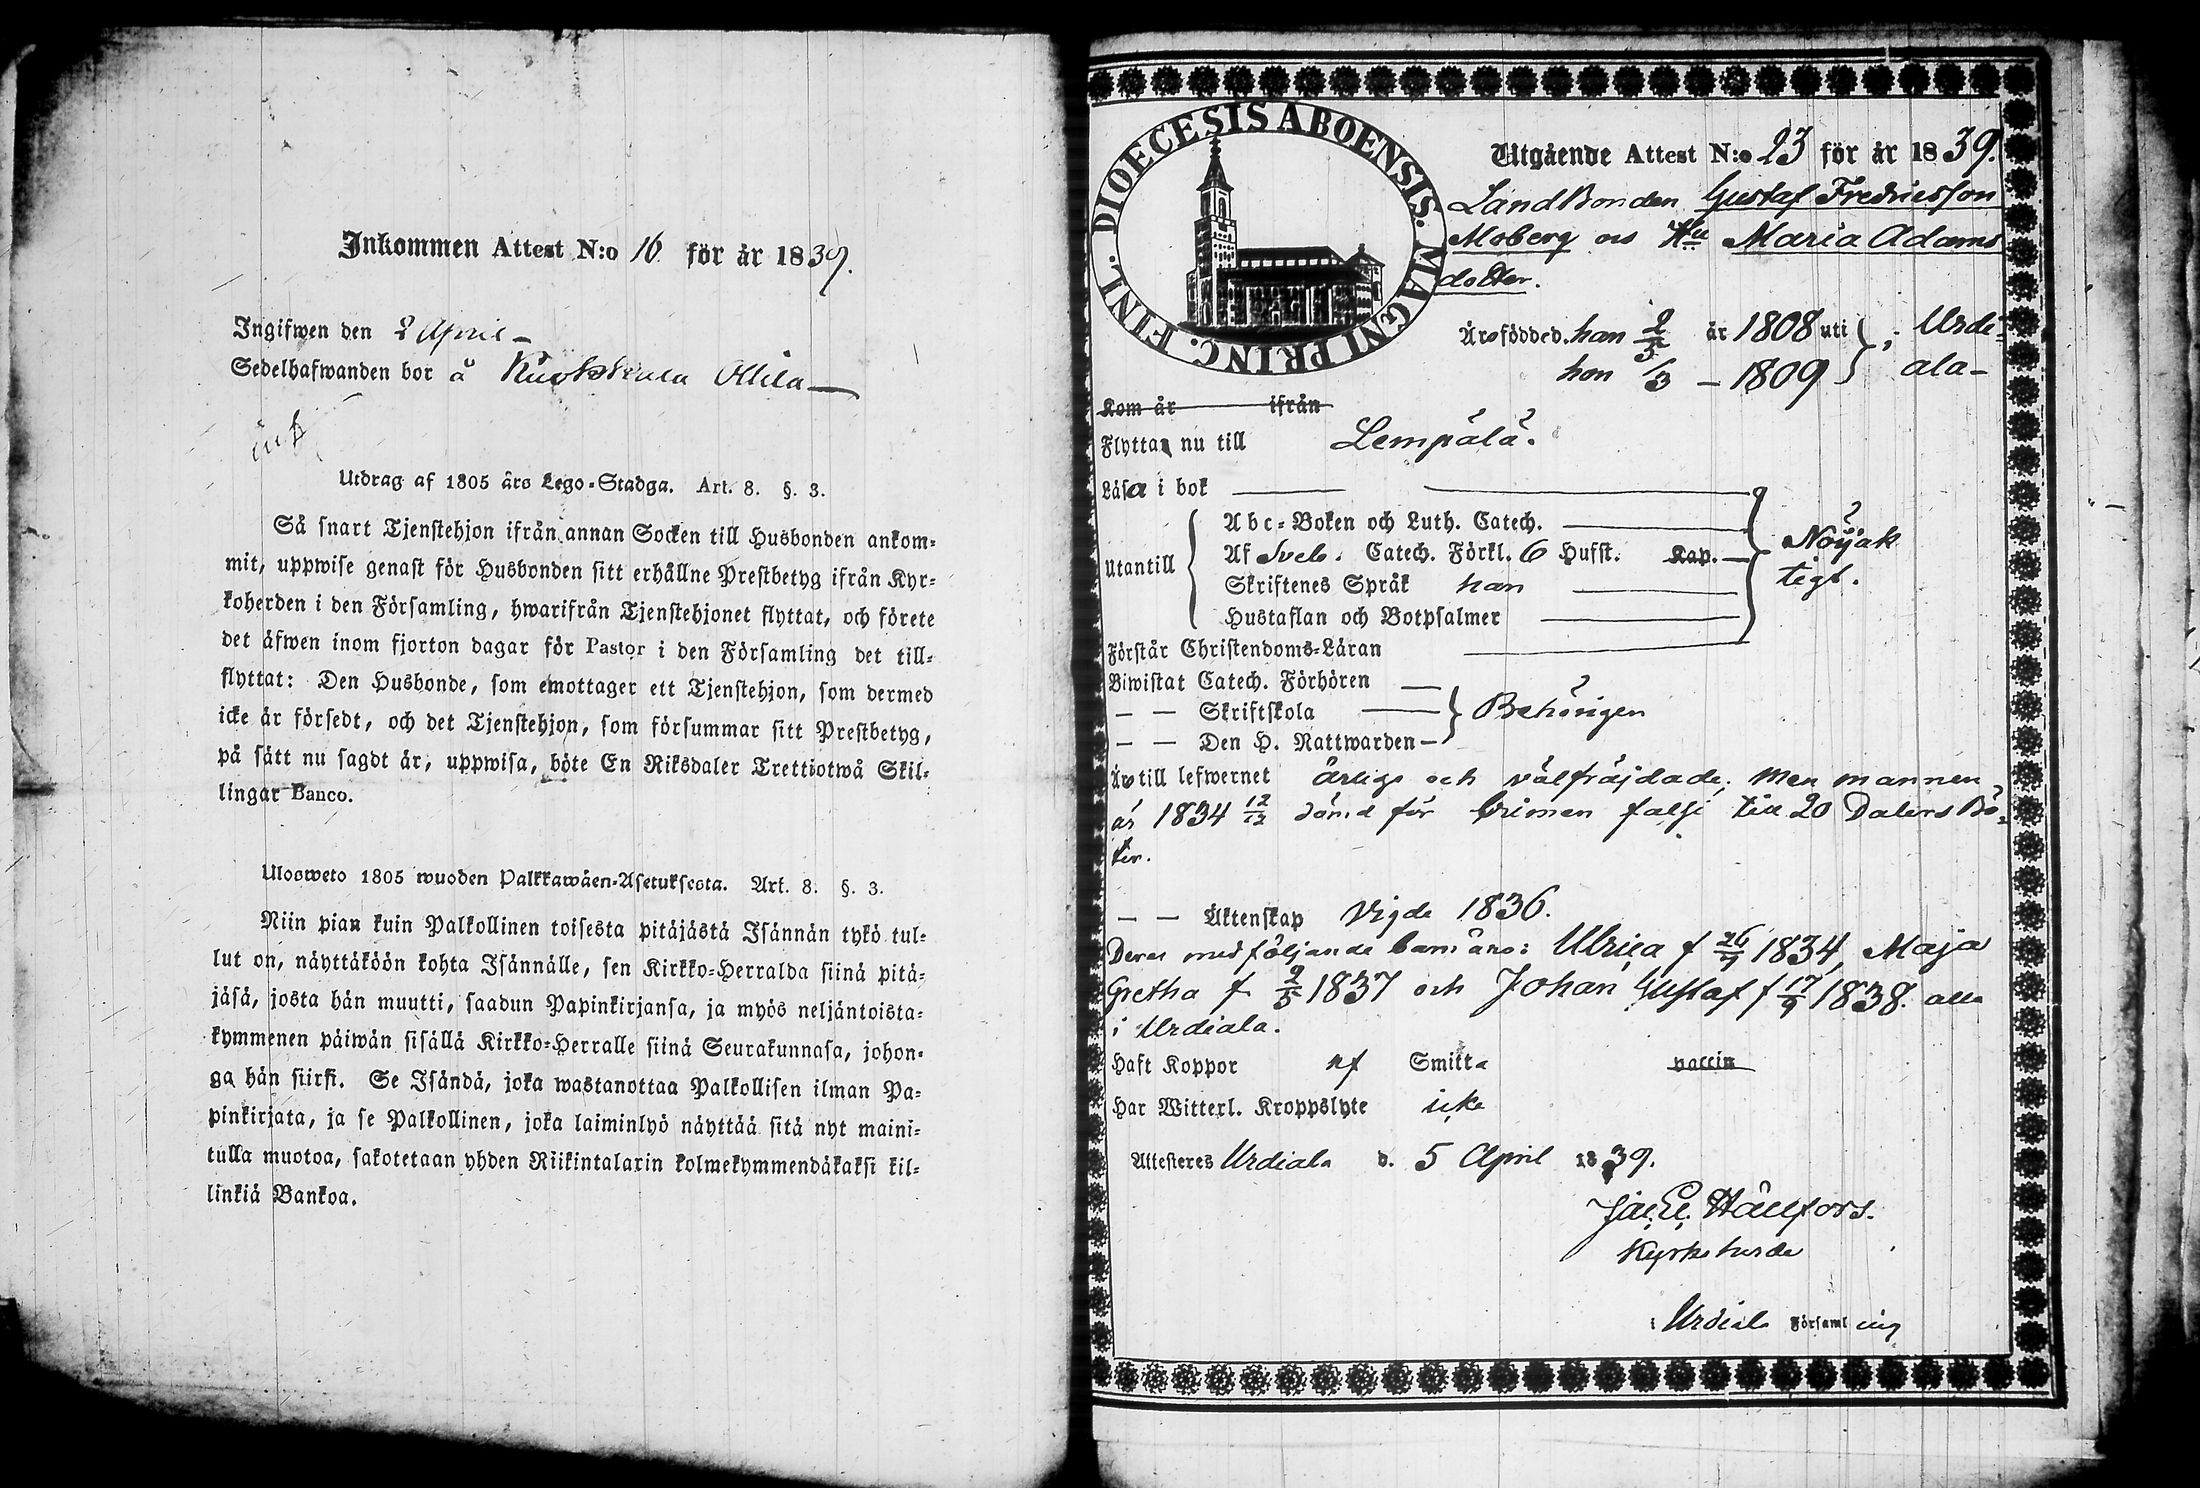 Inkommen Attest N:o 16 för år 1839.
Ingifwen den 8 April
Sedelhafwanden bor å Attila
Utdrag af 1805 års Lego-Stadga. Art. 8. §. 3.
Så snart Tjenstehjon ifrån annan Socken till Husbonden ankom-
mit, uppwise genast för Husbonden sitt erhållne Prestbetyg ifrån Kyr-
koherden i den Församling, hwarifrån Tjenstehjonet flyttat, och förete
det äfwen inom fjorton dagar för Pastor i den Församling det till-
flyttat: Den Husbonde, som emottager ett Tjenstehjon, som dermed
icke är försedt, och det Tjenstehjon, som försummar sitt Prestbetyg,
på sätt nu sagdt är, uppwisa, böte En Riksdaler Trettiotwå Skil-
lingar Banco.
Ulosweto 1805 wuoden Palkkawäen-Asetuksesta. Art. 8. §. 3.
Niin pian kuin Palkollinen toisesta pitäjästä Isännän tykö tul-
lut on, näyttäköön kohta Isännälle, sen Kirkko-Herralda siinä pitä-
jäsä, josta hän muutti, saadun Papinkirjansa, ja myös neljäntoista-
kymmenen päiwän sisällä Kirkko-Herralle siinä Seurakunnasa, johon-
ga hän siirsi. Se Isändä, joka wastanottaa Palkollisen ilman Pa-
pinkirjata, ja se Palkollinen, joka laiminlyö näyttää sitä nyt maini-
tulla muotoa, sakotetaan yhden Riikintalarin kolmekymmendäkaksi kil-
linkiä Bankoa.
DIOECESIS ABOENSIS. MAGNI PRINC. FINL.
Utgående Attest N:o 23 för år 1839.
Landbonden Gustaf Fredricsson
Moberg och Hu Maria Adams
dotter.
Äro födde d. han 2/5 år 1808 uti } i Urdi-
hon /3 – 1809 } ala –
Kom år ifrån
Flytta nu till Lempälä.
Läsa i bok
Utantill
Abc-Boken och Luth. Catech.
Af Sveb. Catech. Förkl. 6 Hufst. Kap.
Nöijak
tigt.
Skriftenes Språk han
Hustaflan och Botpsalmer
Förstår Christendoms-Läran
Biwistat Catech. Förhören
— — Skriftskola } Behörigen
— — Den H. Nattwarden
Äro till lefwernet ärlige och välfräjdade, men mannen
är 1834 12/12 dömd för crimen falsi till 20 Dalers Bö-
ter.
— — Äktenskap Vigde 1836.
Deras medföljande barn äro: Ulrica f 26/7 1834, Maja
Gretha f 2/5 1837 och Johan Gustaf f 17/9 1838. alla
i Urdiala.
Haft Koppor af Smitta vaccin
Har Witterl. Kroppslyte icke
Attesteres Urdiala d. 5 April 1839.
Jac. E. Hällfors.
Kyrkoherde
i Urdiala Församling